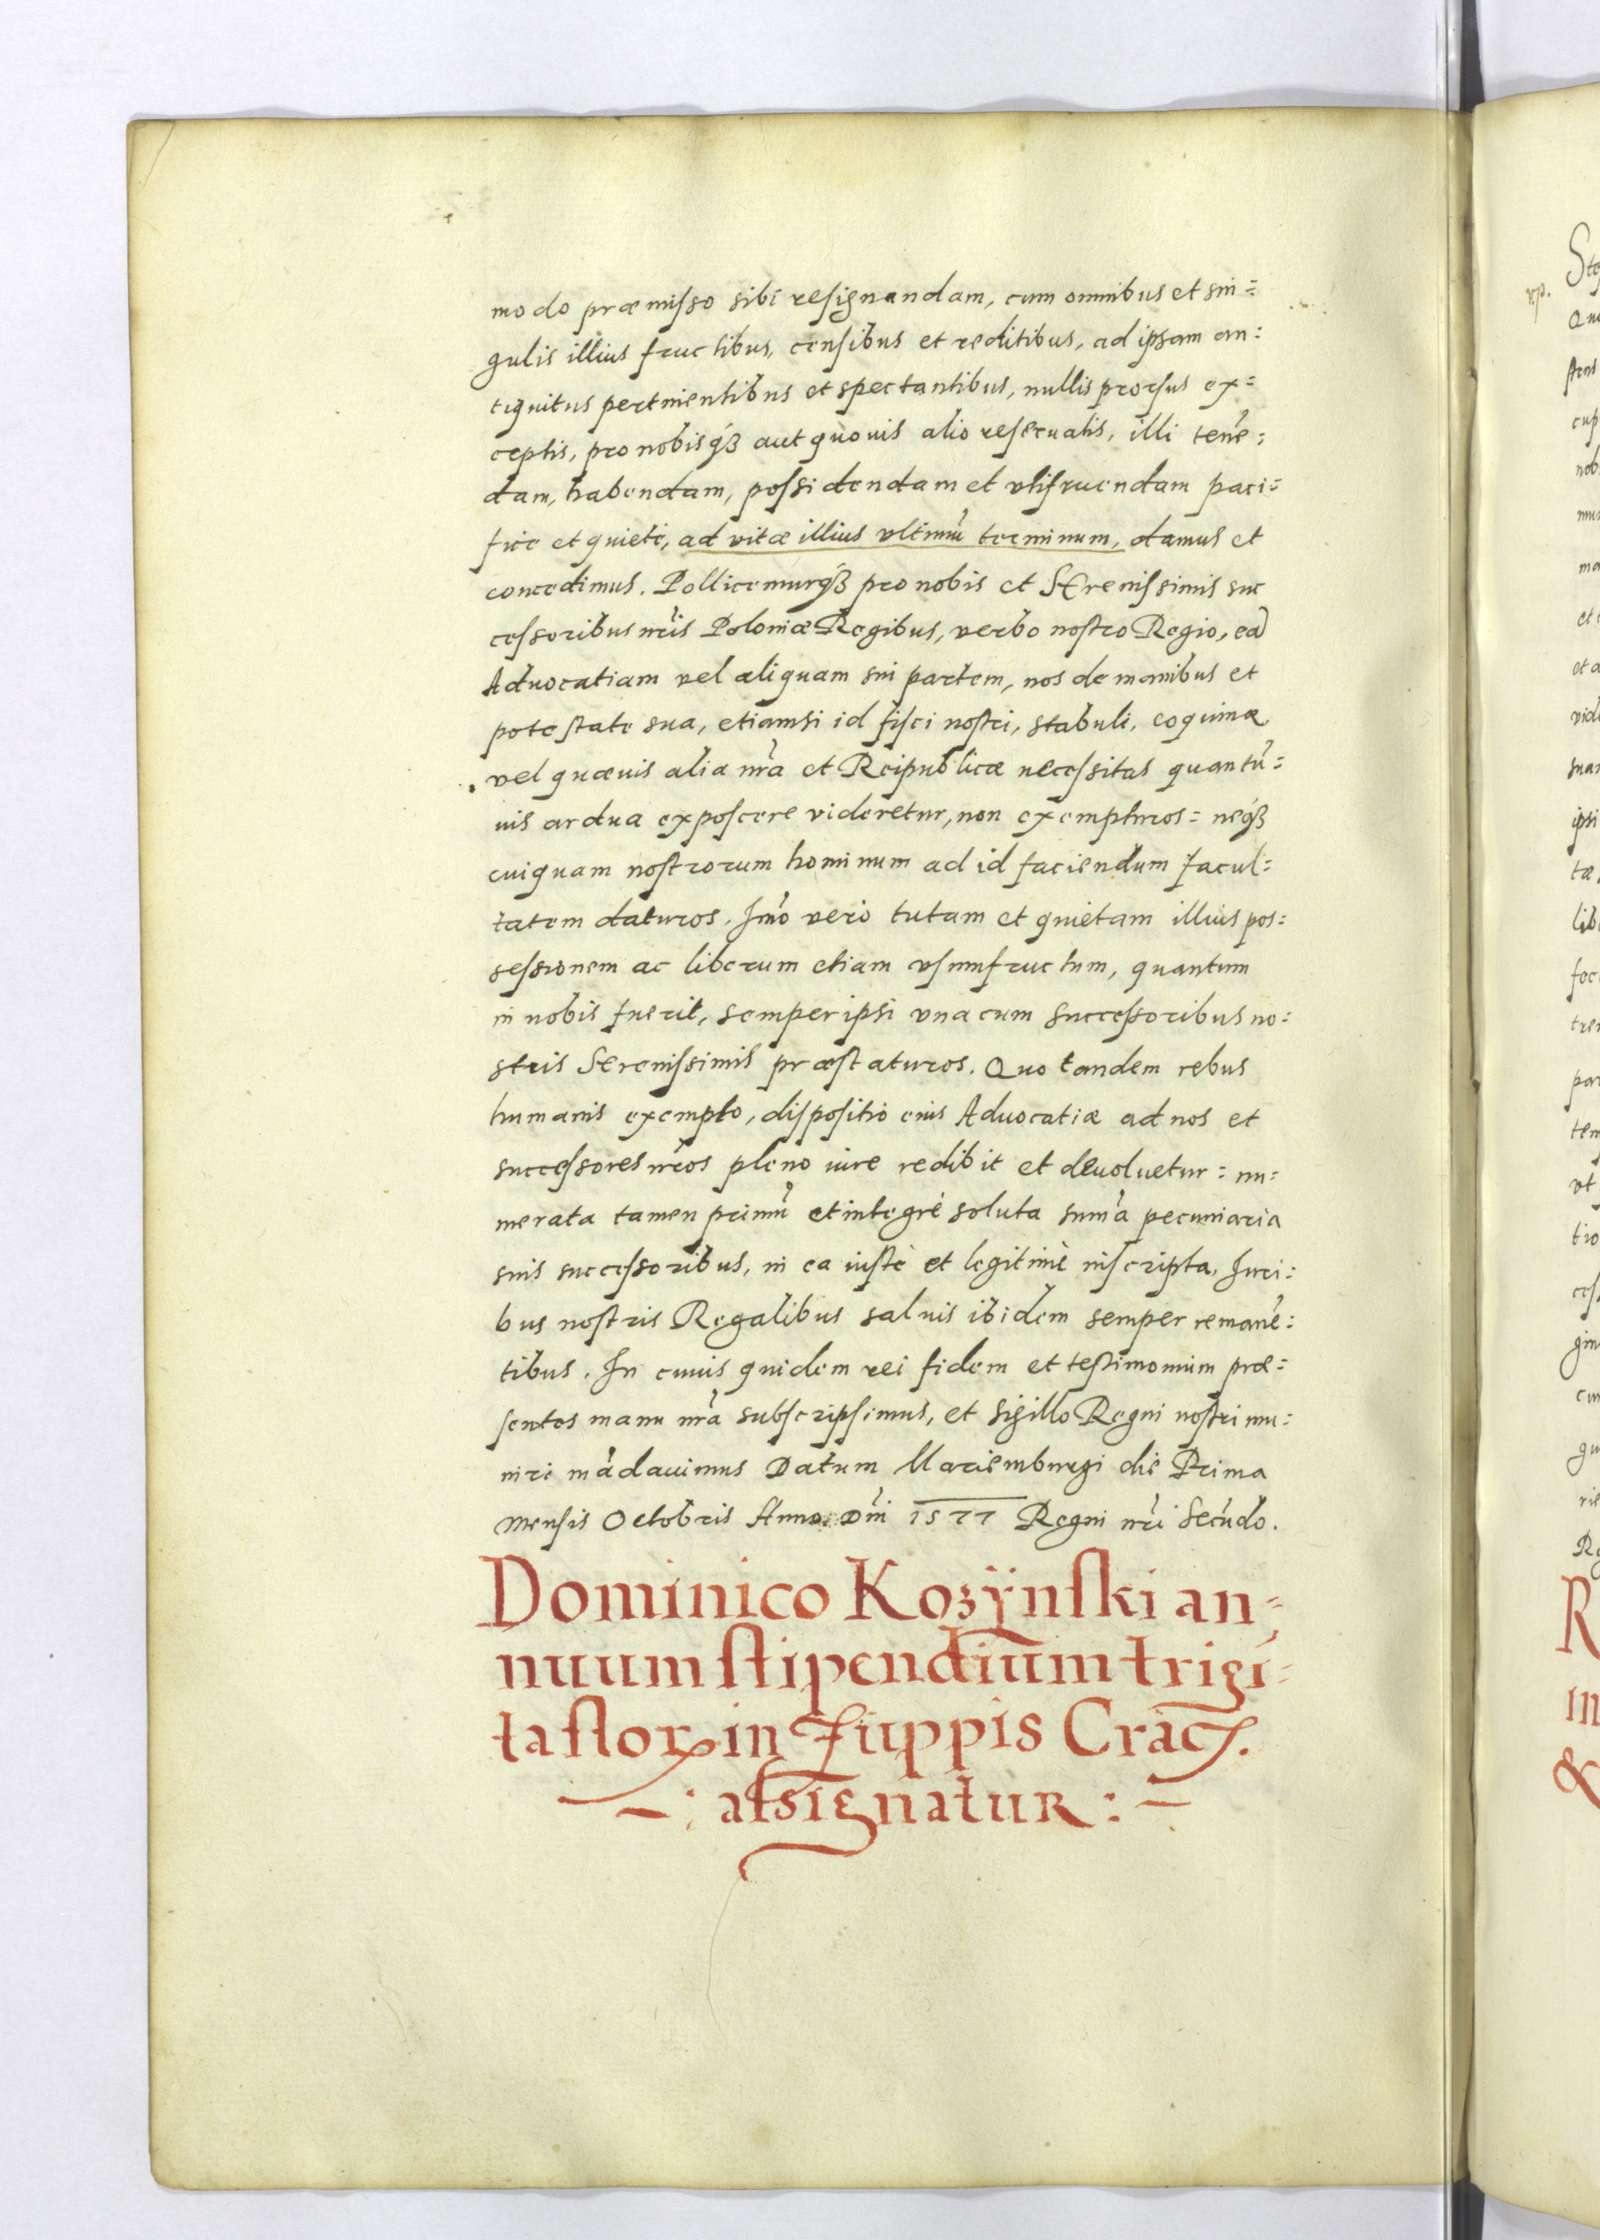 modo præmisso sibi resignandam, cum omnibus et sin=
gulis illius fructibus, censibus et reditibus, ad ipsam an:
tiquitus pertinentibus et spectantibus, nullis prorsus ex=
ceptis, pro nobisq́ʒ aut quouis alio reseruatis, illi tenē:
dam, habendam, possidendam et vtifruendam paci=
fice et quiete, ad vitæ illius vltimū terminum, damus et
concedimus. Pollicemurq́ʒ pro nobis et Serenissimis suc
cessoribus nr̃is Poloniæ Regibus, verbo nostro Regio, eā
Aduocatiam vel aliquam sui partem, nos de manibus et
potestate sua, etiamsi id fisci nostri, stabuli, coquinæ
vel quæuis alia nr̃a et Reipublicæ necessitas quantū=
uis ardua exposcere videretur, non exempturos= neq́ʒ
cuiquam nostrorum hominum ad id faciendum facul=
tatem daturos. Imō vero tutam et quietam illius pos=
sessionem ac liberum etiam vsumfructum, quantum
in nobis fuerit, semper ipsi vna cum successoribus no=
stris Serenissimis præstaturos. Quo tandem rebus
humanis exempto, dispositio eius Aduocatiæ ad nos et
successores nr̃os pleno iure redibit et deuoluetur= nu=
merata tamen primū et integrè soluta sum̃a pecuniaria
suis successoribus, in ea iustè et legitimè inscripta, Iuri=
bus nostris Regalibus saluis ibidem semper remanē=
tibus. In cuius quidem rei fidem et testimonium præ=
sentes manu nr̃a subscripsimus, et sigillo Regni nostri mu=
niri mādauimus Datum Mariemburgi die Prima
Mensis Octobris Anno Dñi 1577 Regni nr̃i Secūdo.
Dominico Kozÿnski an=
nuum stipendium trigī=
ta flor. in Zuppis Crac.
—: assignatur :—